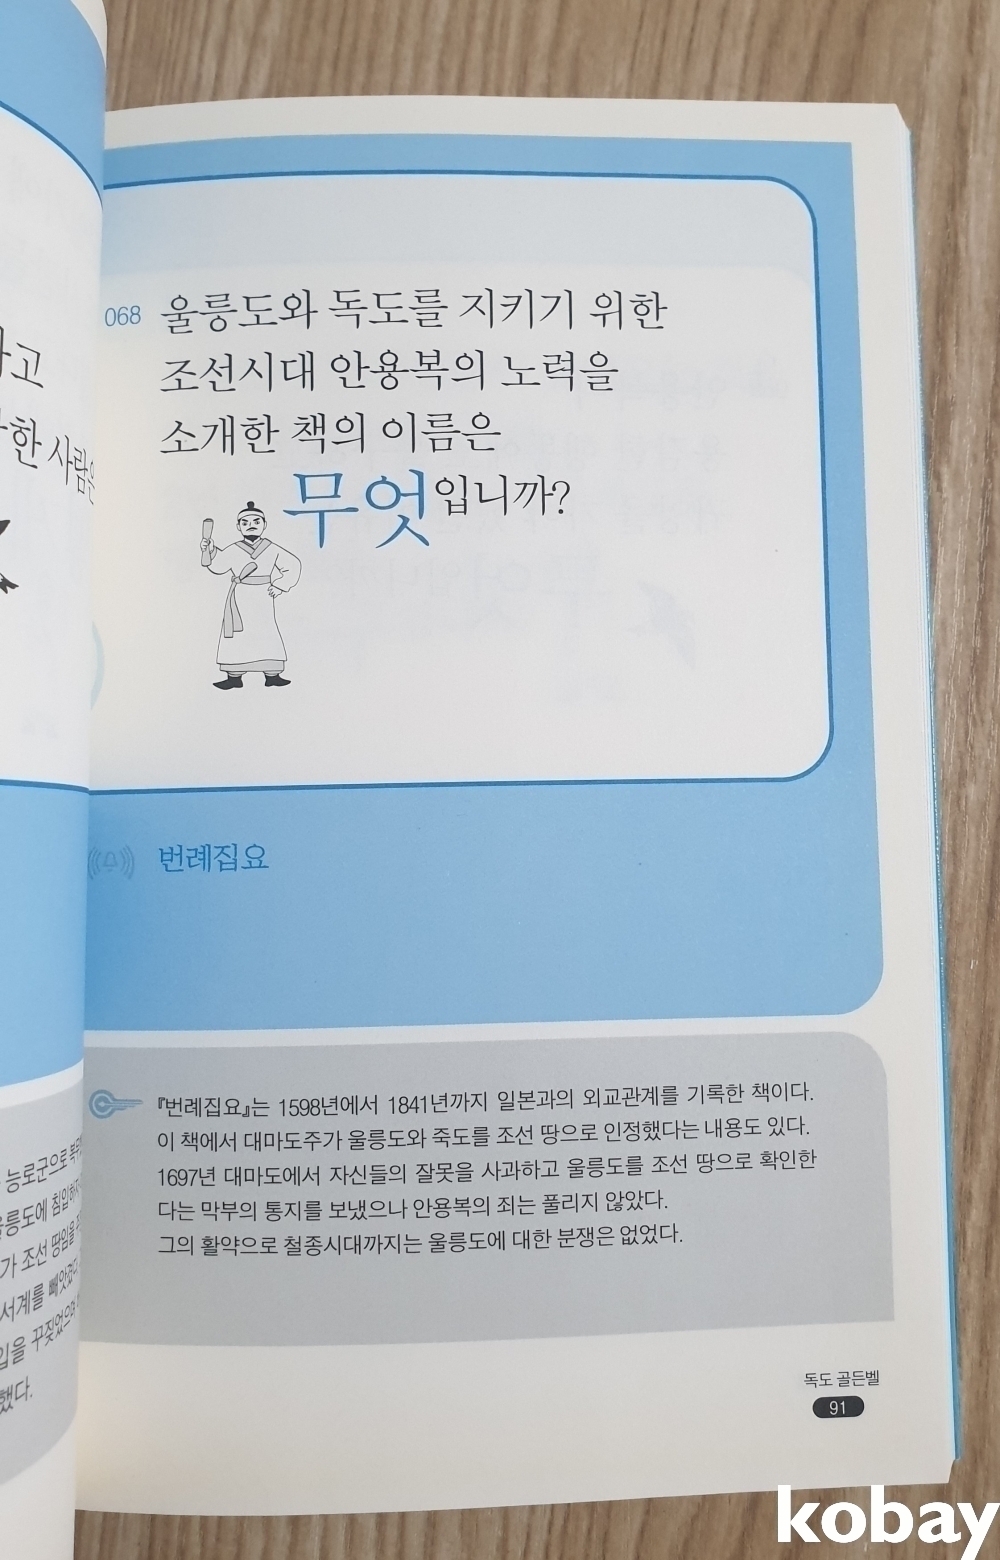 068 울릉도와 독도를 지키기 위한
조선시대 안용복의 노력을
소개한 책의 이름은
무엇입니까?
번례집요
『번례집요』는 1598년에서 1841년까지 일본과의 외교관계를 기록한 책이다.
이 책에서 대마도주가 울릉도와 죽도를 조선 땅으로 인정했다는 내용도 있다.
1697년 대마도에서 자신들의 잘못을 사과하고 울릉도를 조선 땅으로 확인한
다는 막부의 통지를 보냈으나 안용복의 죄는 풀리지 않았다.
그의 활약으로 철종시대까지는 울릉도에 대한 분쟁은 없었다.
독도 골든벨
91
고
한 사람은
능로군으로
울릉도에
가 조선 땅임을
서계를 빼앗겼다.
입을 꾸짖었으며
했다.
kobay